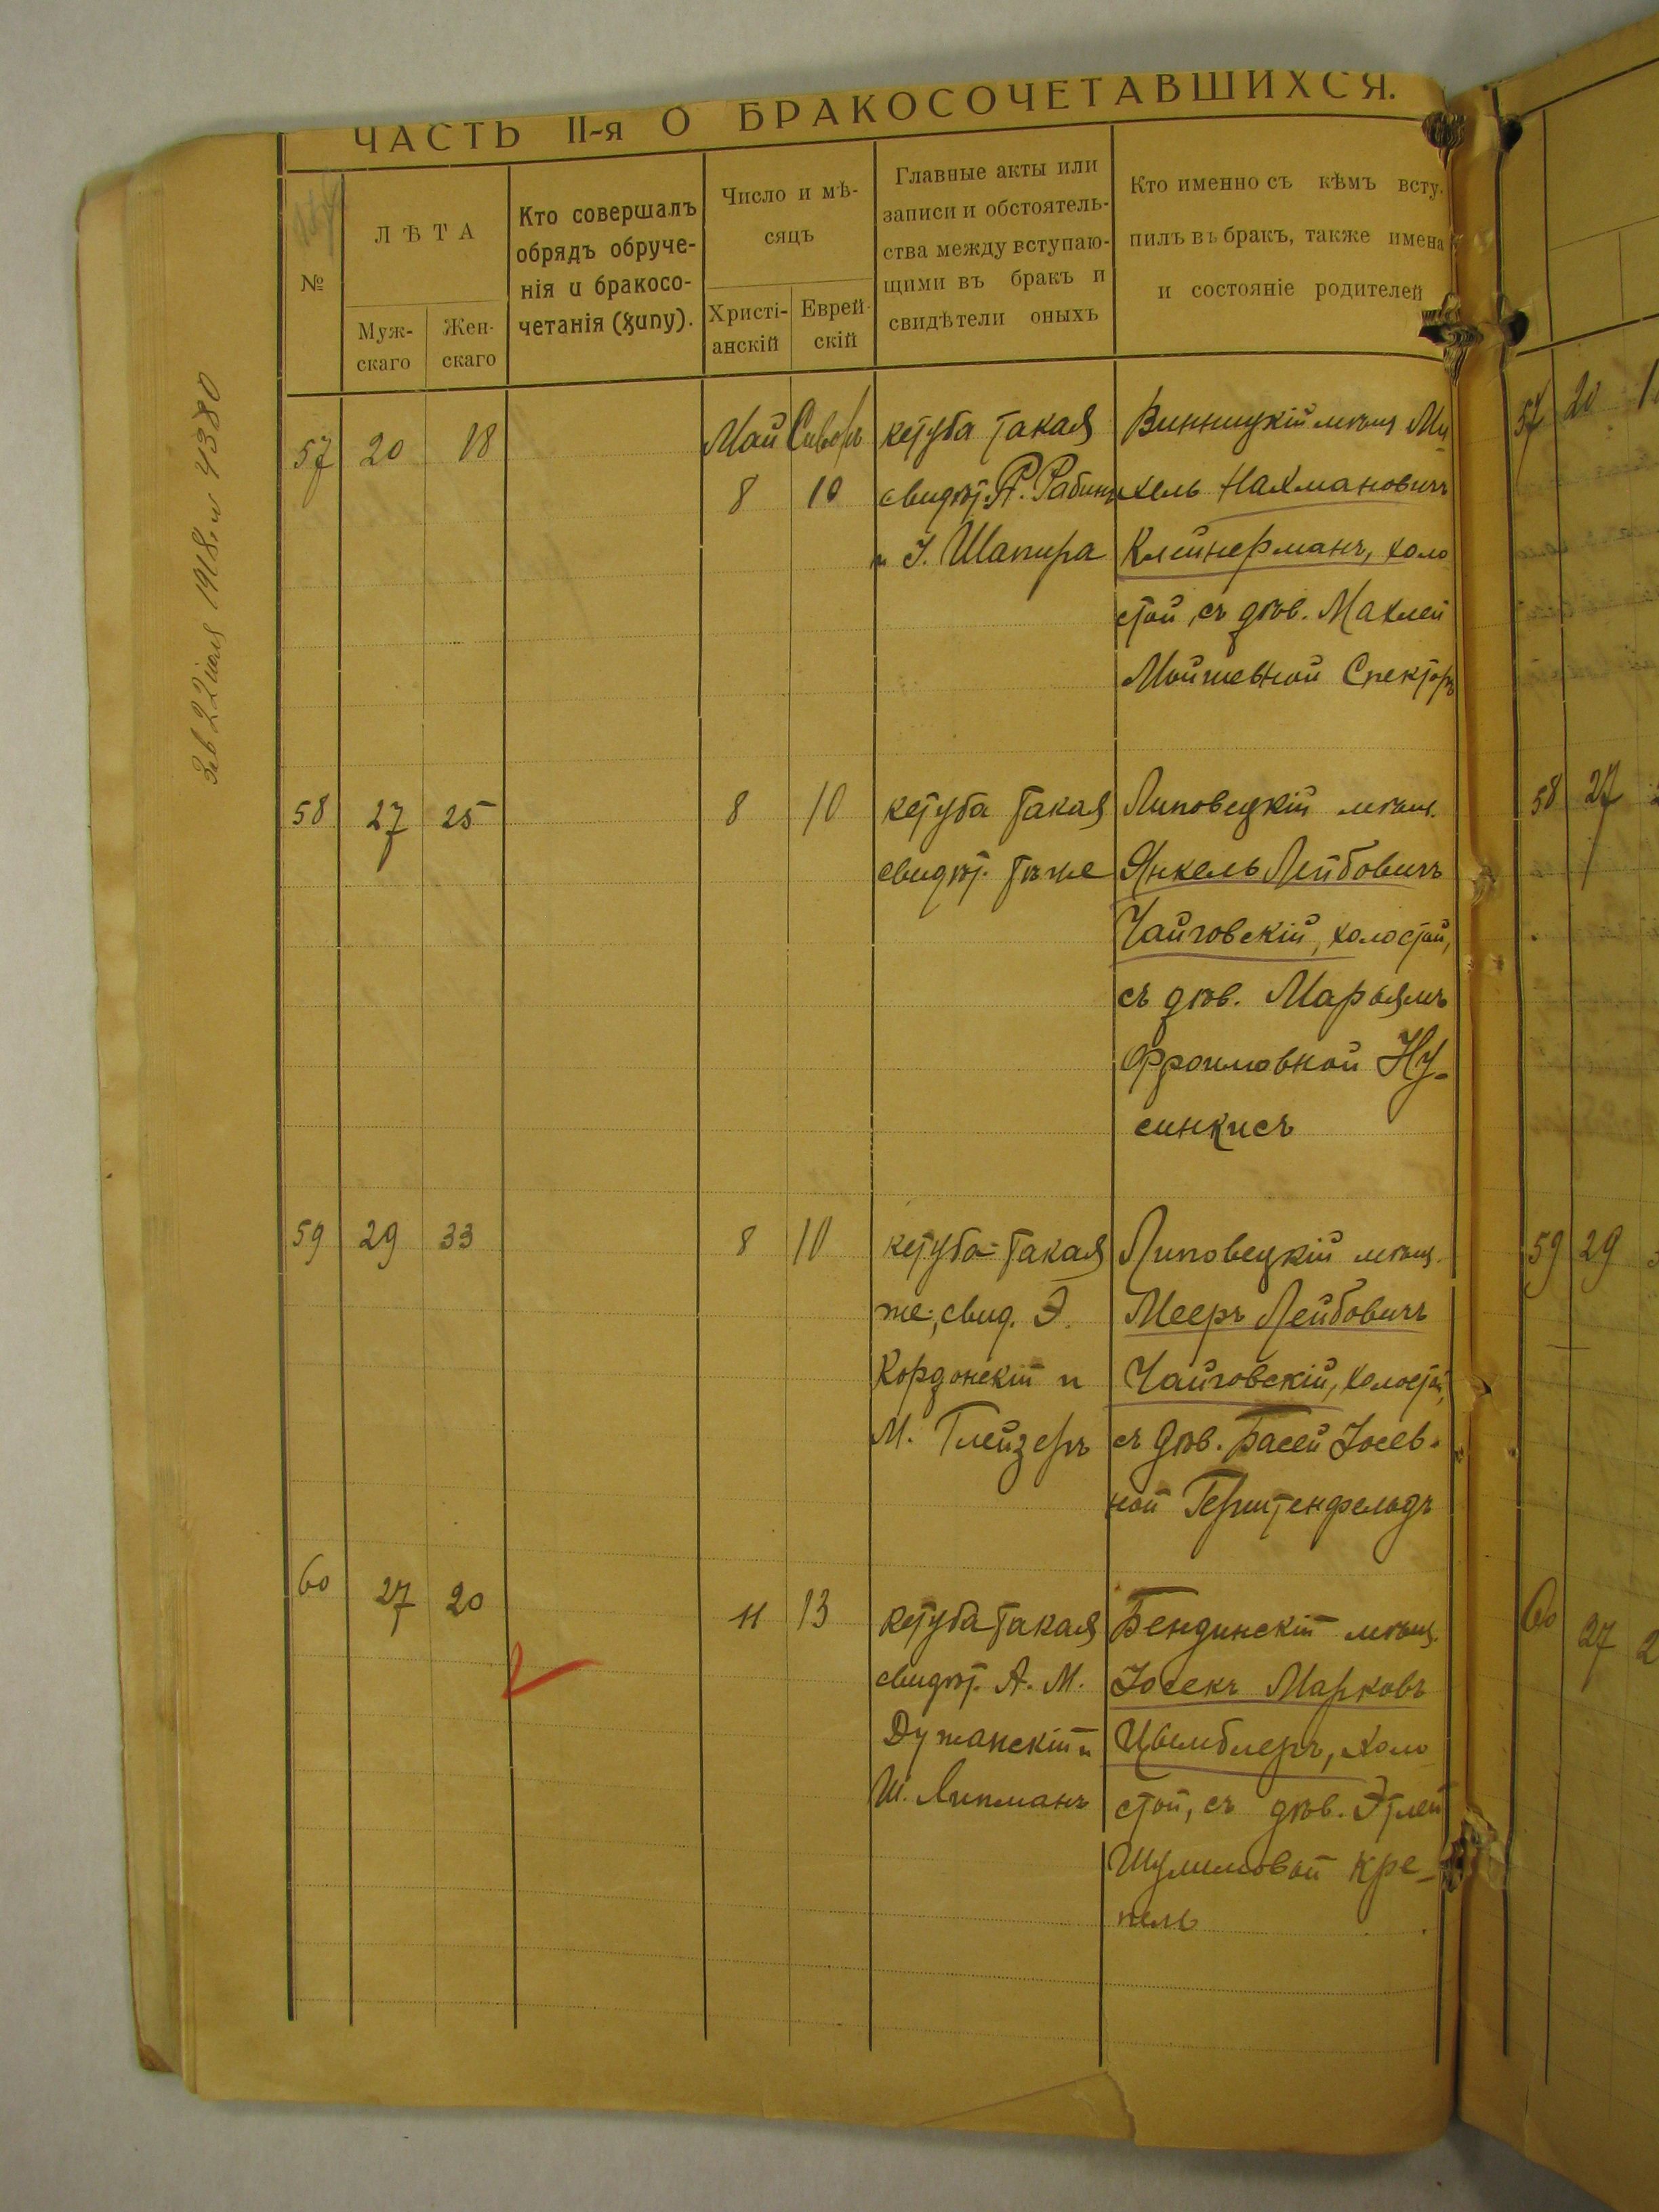 ЧАСТЬ II-я О БРАКОСОЧЕТАВШИХСЯ.
№
ЛѢТА
Муж-
скаго
Жен-
скаго
Кто совершалъ
обрядъ обруче-
нія и бракосо-
четанія (хипу).
Число и мѣ-
сяцъ
Христі-
анскій
Еврей-
скій
Главные акты или
записи и обстоятель-
ства между вступаю-
щими въ бракъ и
свидѣтели оныхъ
Кто именно съ кѣмъ всту-
пилъ въ бракъ, также имена
и состояніе родителей
2 іюля 1918 4380
57 20 18
Май
8 10
кетуба такая
свидѣт. А. Рабин
и І. Шапира
Винницкій мѣщ Ми
хель Нахмановичъ
Клейнерманъ, холо
стой, съ дѣв. Махлей
Мойшевной Спекторъ
58 27 25 8 10
кетуба такая
свидѣт. тѣже
Липовецкій мѣщ.
Янкель Лейбовичъ
Чайговскій, холостой,
съ дѣв. Марьямъ
Фроимовной Ну-
синкисъ
59 29 33 8 10
кетуба такая
же, свид. Э.
Кордонскій и
М. Глейзеръ
Липовецкій мѣщ.
Мееръ Лейбовичъ
Чайговскій, холостой,
съ дѣв. Басей Іосев-
ной Герштенфельдъ
60 27 20 11 13
кетуба такая
свидѣт. А. М.
Дужанскій и
Ш. Липманъ
Бендинскій мѣщ.
Іосекъ Марковъ
Цвемблеръ, холо
стой, съ дѣв. Этлей
Шулимовой Кре-
пель
57 20
58 27
59 29
60 27